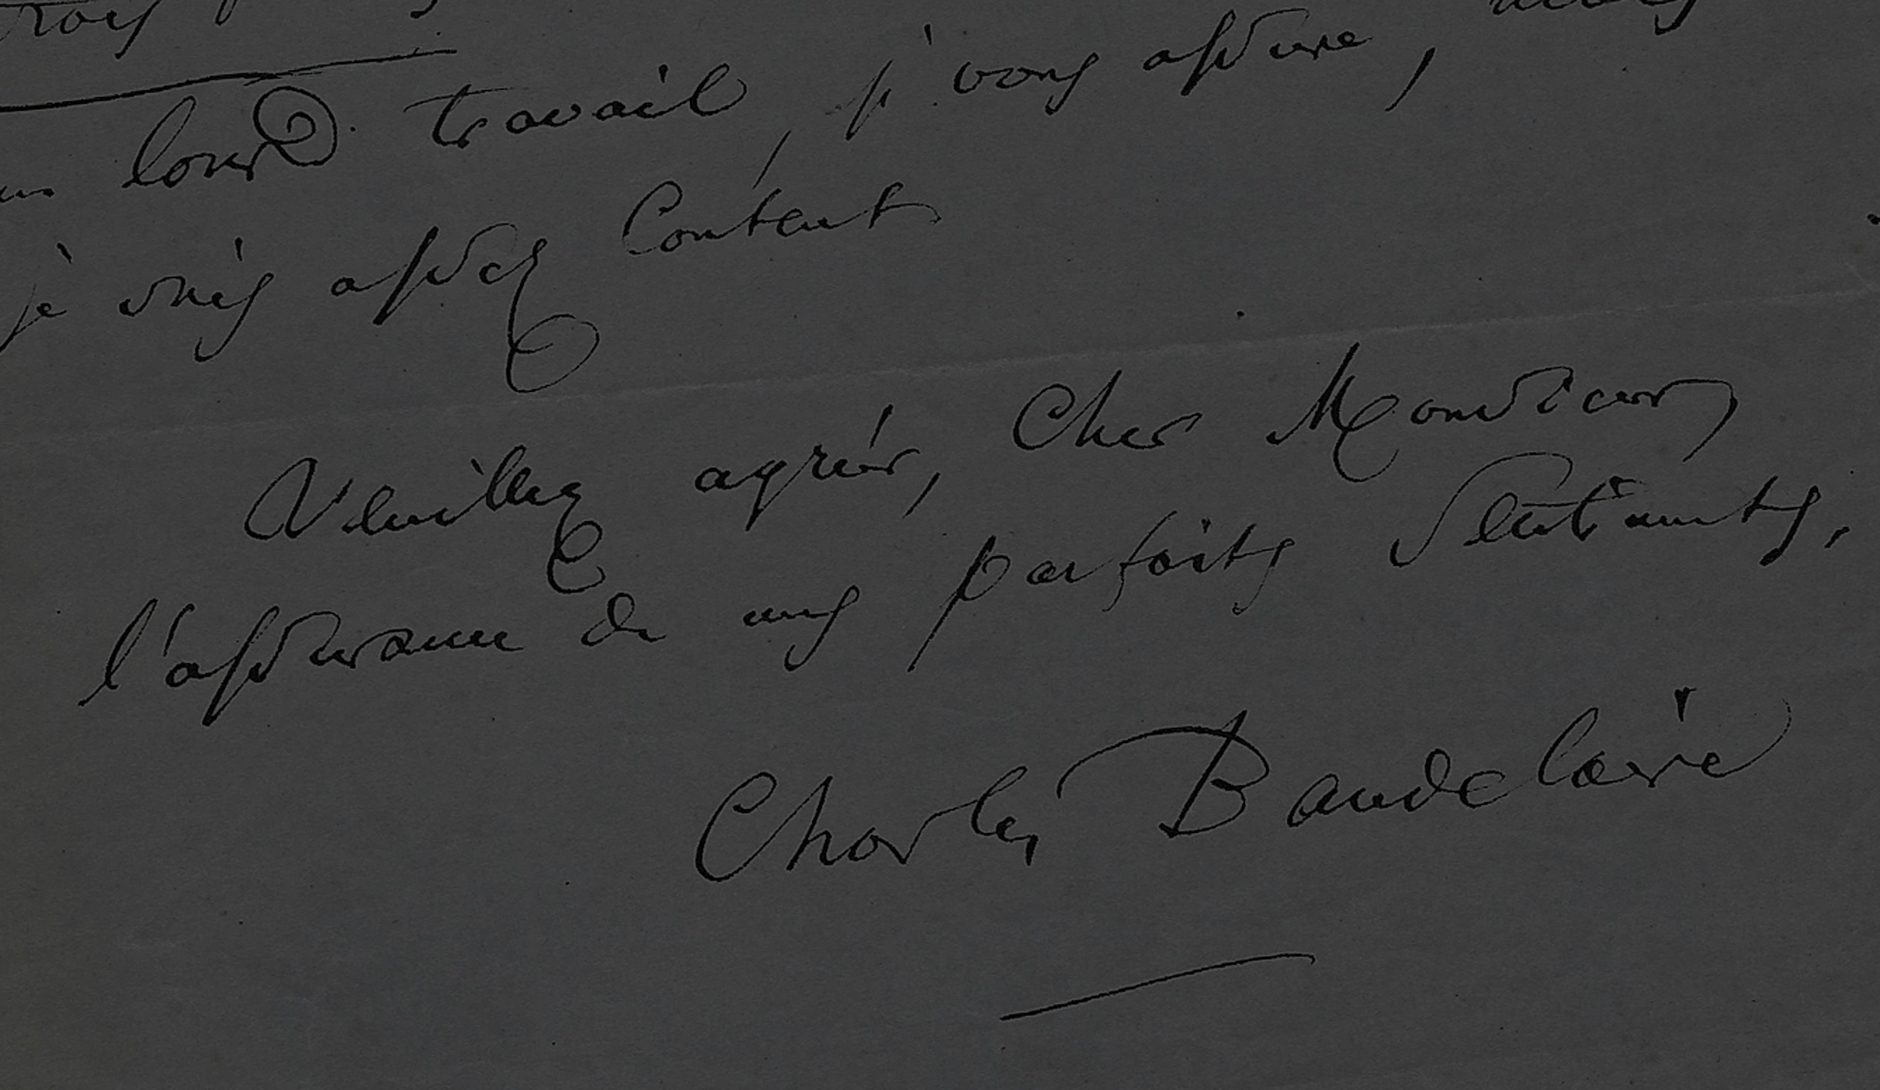 trois
lourd travail, je vous assure, mais
je suis assez content
Veuillez agréer, Cher Monsieur,
l'assurance de mes parfaits sentiments.
Charles Baudelaire